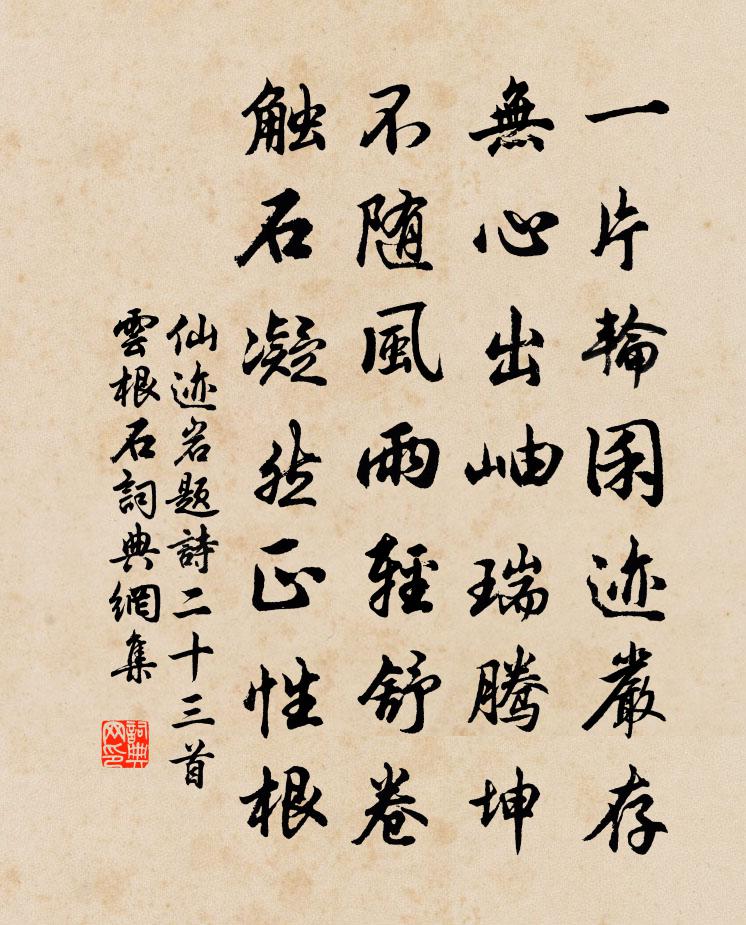 一片輪囷迹嚴存
無心出岫瑞騰坤
不随風雨輕舒卷
触石凝然正性根
仙迹岩题詩二十三首
雲根石詞典網集
詞典网印